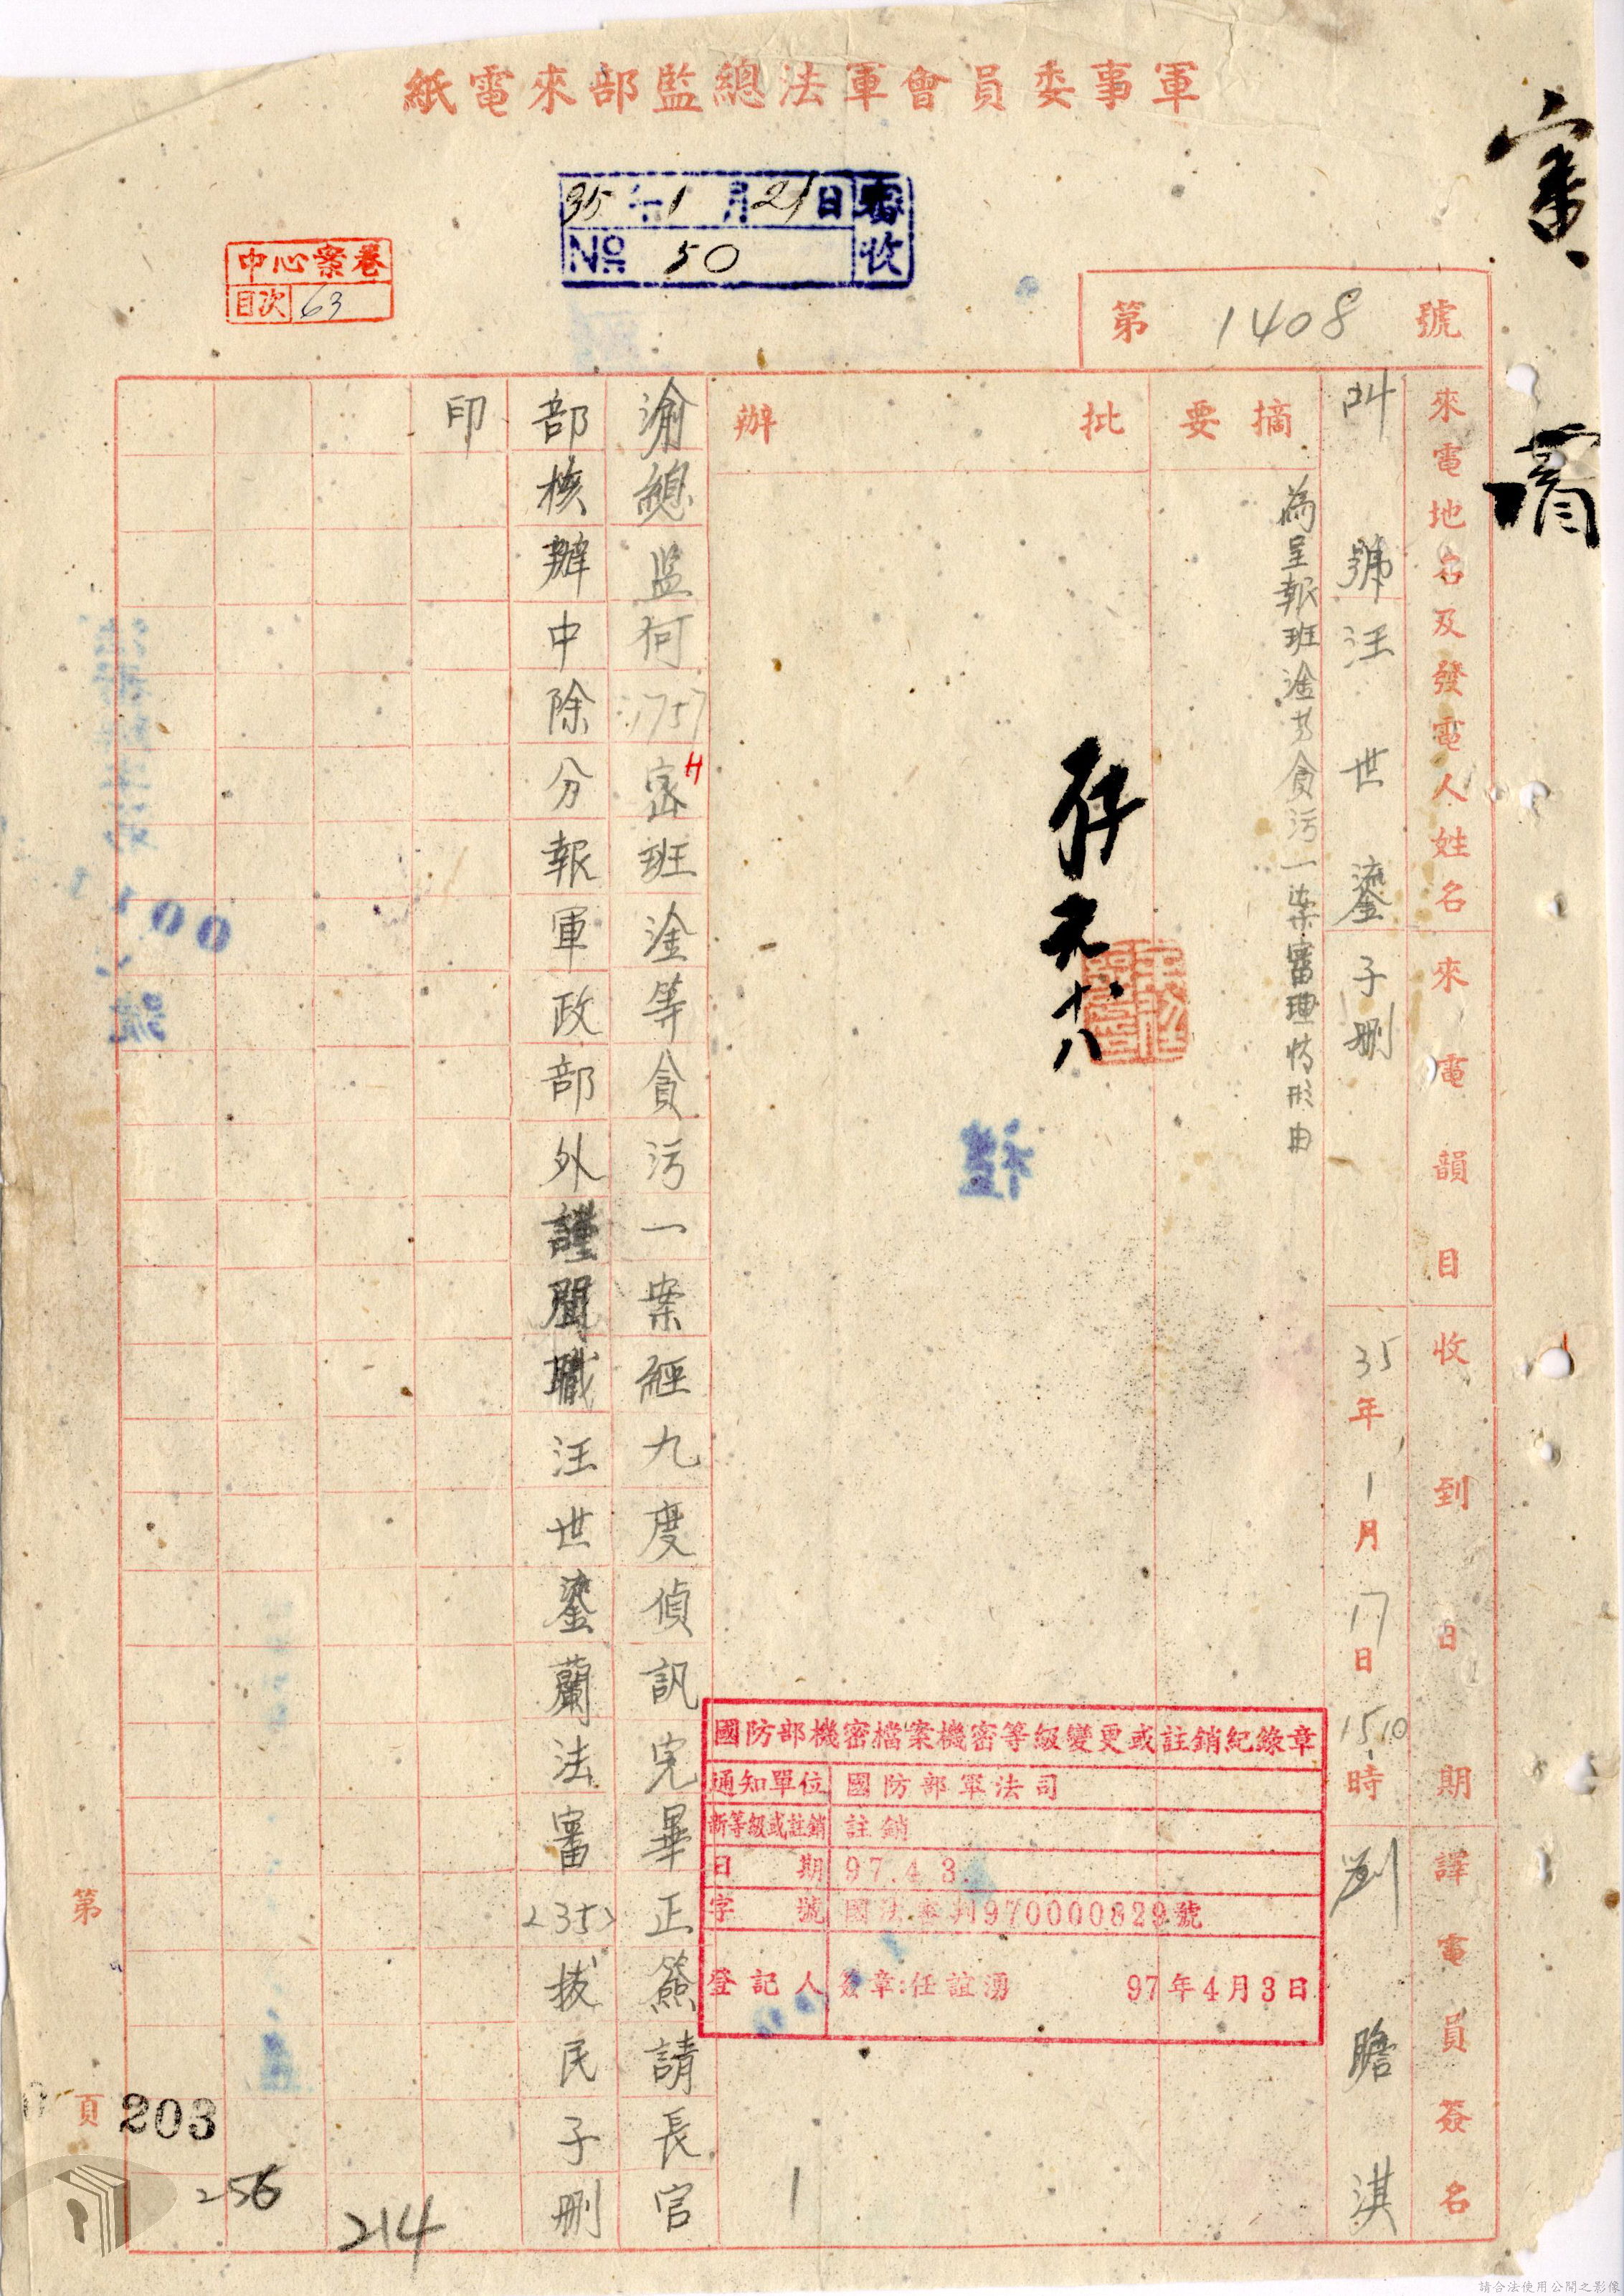 軍事委員會軍法總監部來電紙
35年1月21日
審收
No 50
中心案卷
目次 63
第1408號
來電地名及發電人姓名
汪世鎏
來電韻目
子刪
收到日期
35年1月17日1510時
譯電員簽名
劉瞻淇
摘要
為呈報班淦等貪污一案審理情形由
批辦
存 元十八
渝總監何 1757 密班淦等貪污一案經九度偵訊完畢正簽請長官
部核辦中除分報軍政部外謹聞職汪世鎏蘭法審(35)拔民子刪
印
國防部機密檔案機密等級變更或註銷紀錄章
通知單位 國防部軍法司
新等級或註銷 註銷
日期 97.4.3
字號 970000829號
登記人 簽章:任誼湧 97年4月3日
第頁
203
256
214
1
請合法使用公開之影像